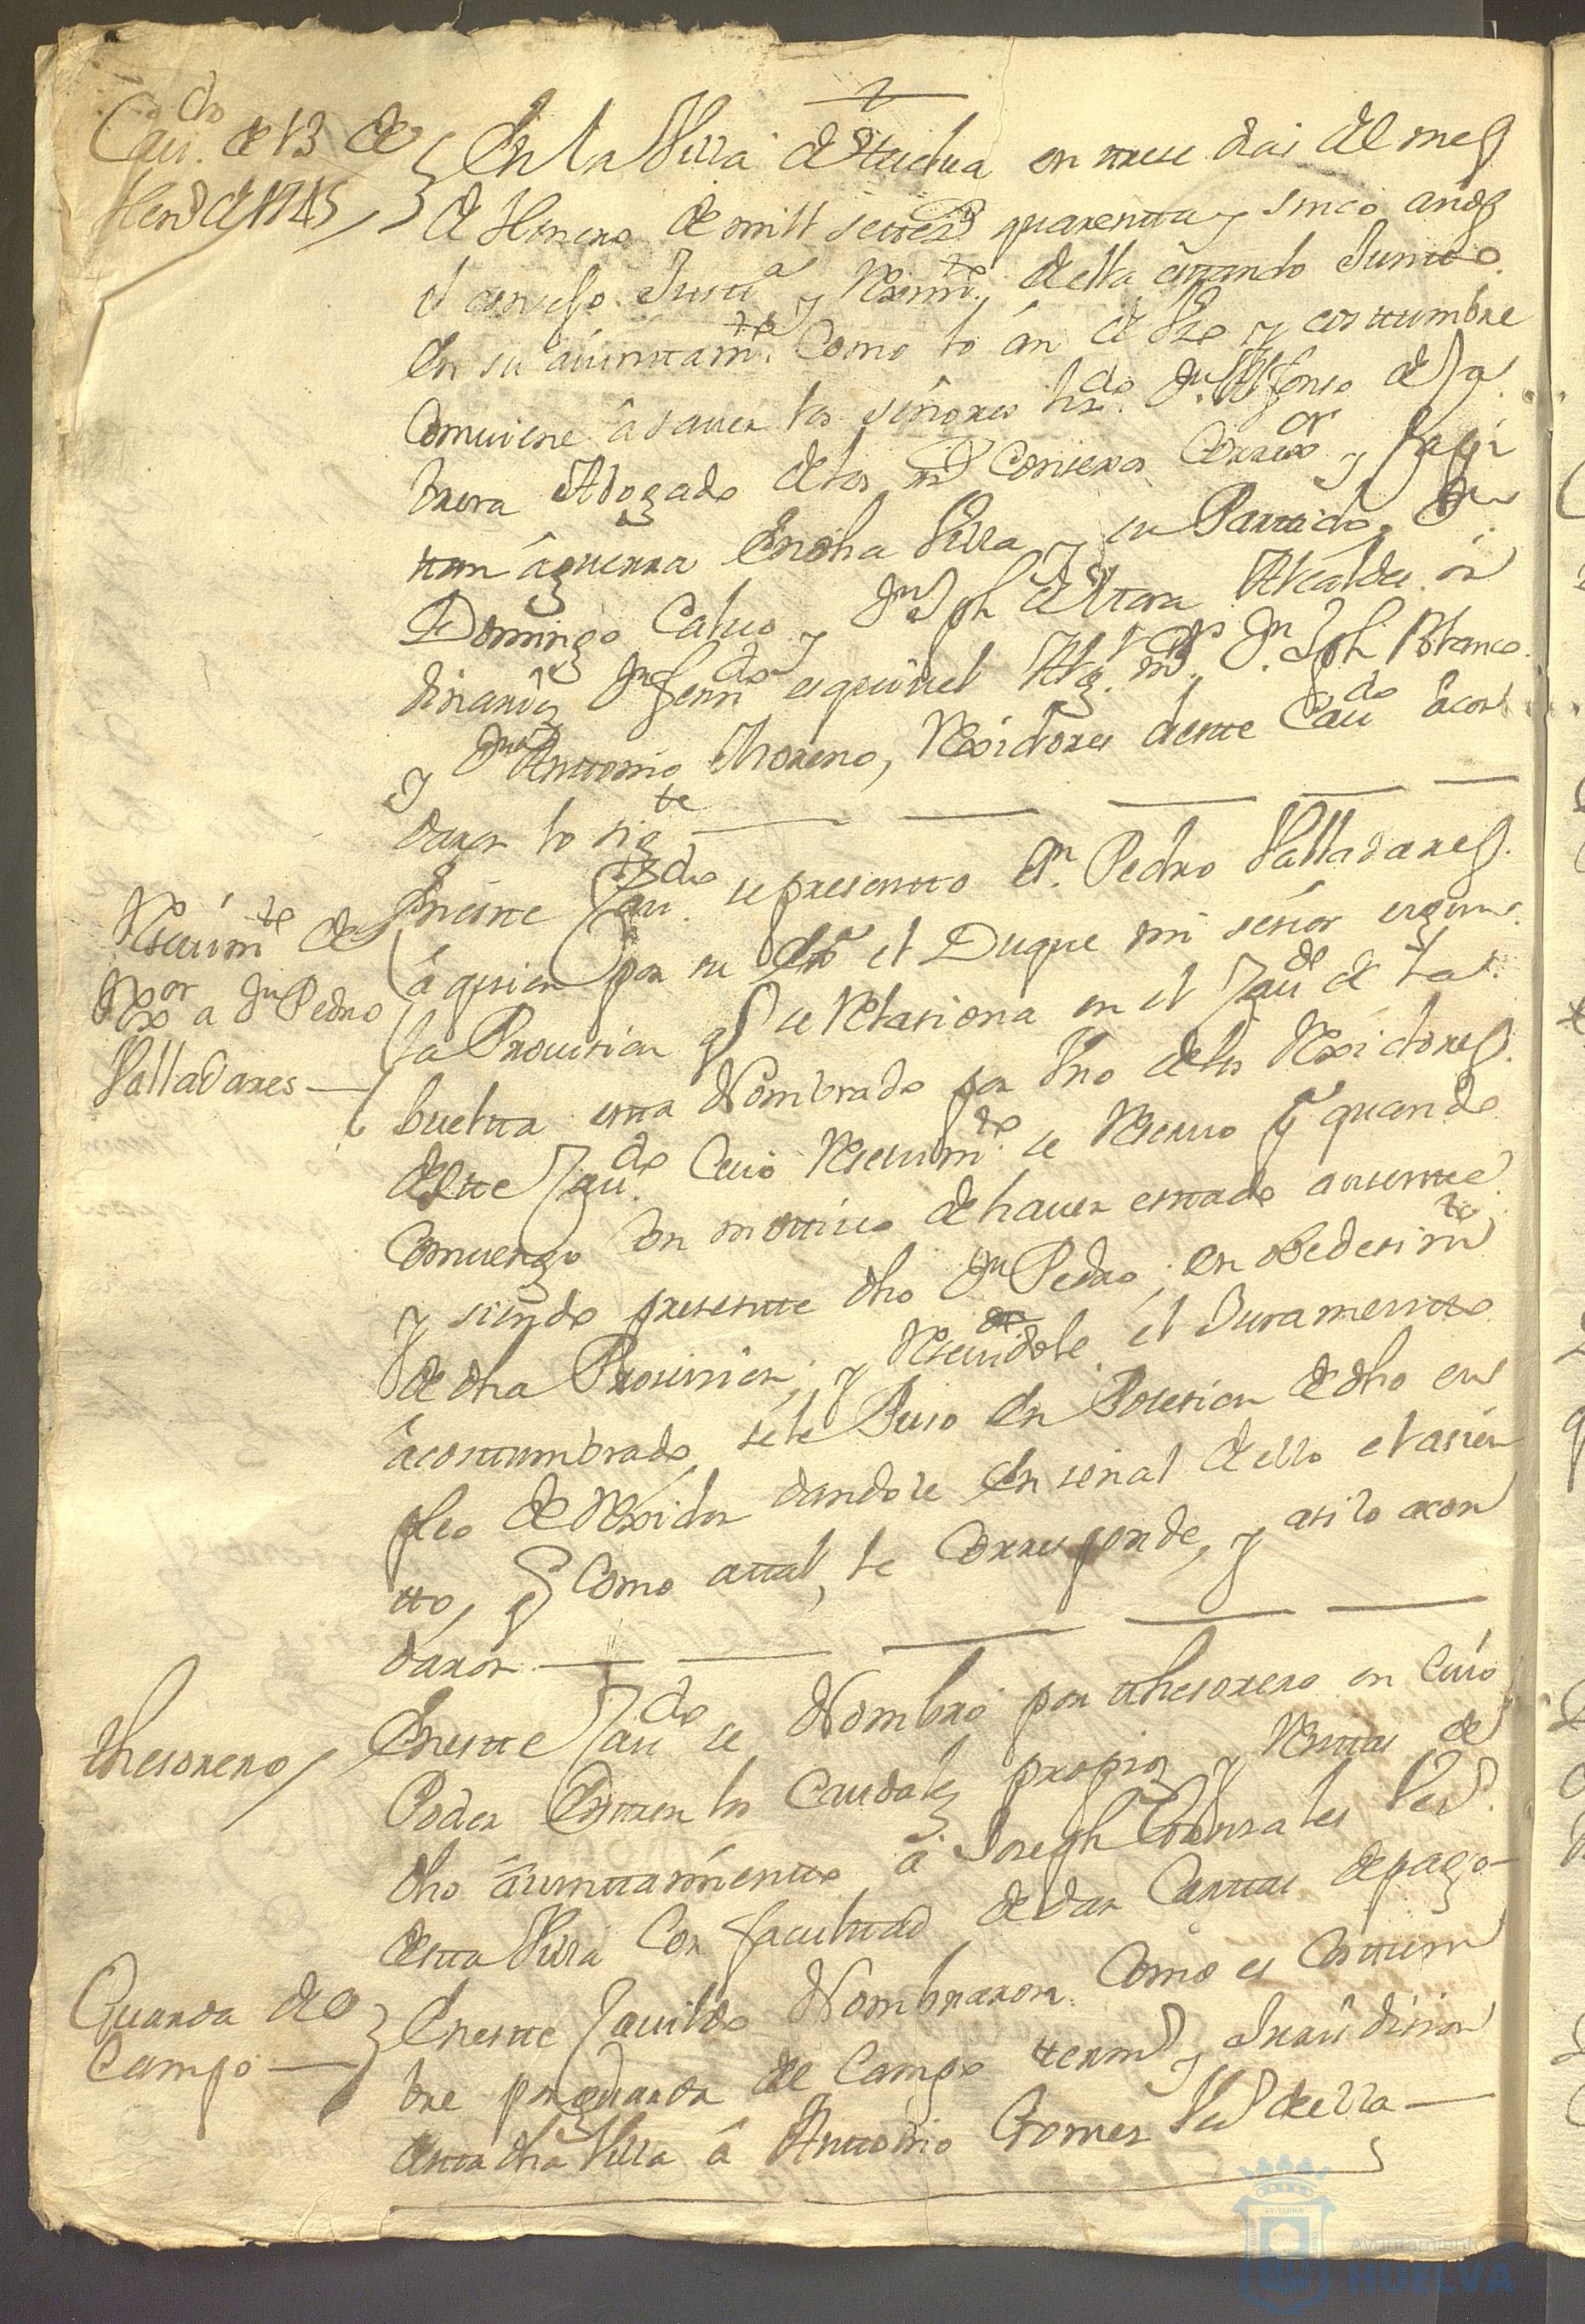 Cavdo. de 13 de
Henº de 1745
En la Villa de Huelua en trece dias del mes
de Henero de mill settezs quarentta y sinco años
el consejo Justtª y Reximto. de ella estando Juntto
en su aiuntamto. Como lo án de Vso y costtumbre
Comuiene â sauer los señores lizdo. Dn. Alfonso de
Abogado de los Rs Consexos Correxor y Capi
ttan âguerra En dha Villa y su Parttido, Dn
Domingo Caluo y Dn Jph de Alcaldes or
dinarios Dn Ferndo esquiuel Algl mr Dn. Jph Blanco
y Dn Anttonio Moreno, Rexidores de este Caudo acor
daron lo sigte
Reseuimto de
Rexor a Dn Pedro
Valladares
En este Zaudo. se presentto Dn. Pedro Valladares
á quien por su Exª el Duque mi señor segun
la Prouision q se Relasiona en el Zaudo de la
buelta estta Nombrado por Vno de los Rexidores
de estte Zaudo. Cuio Reseuimto. se Reseruo pª quando
Comuenga Con mottiuo de hauer esttado ausentte
y siendo presentte dho Dn Pedro, en obedesimto
de dha Prouision, y Reseuidole el Juramentto
âcosttumbrado, sele Puso En Posesion de dho em
pleo de Rexidor dandole En señal de ello el asien
tto, q Como attal, le Corresponde, y asi lo acor
daron
thesorero
En estte Zaudo se Nombró por thesorero en Cuio
Poder Enttren los Caudales propios y Renttas de
dho aiunttamientto â Joseph Gonsales Veº
de estta Villa Con facultad de dar Carttas de pago
Guarda de
Campo
En estte Zauildo Nombraron Como es Costtum
bre por guarda de Campo termº y Jurisdision
de estta dha Villa â Anttonio Gomes Veº de ella
Ayuntamiento
HUELVA